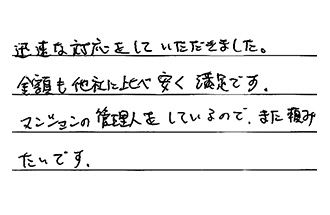 迅速な対応をしていただきました。
金額も他社に比べ安く満足です。
マンションの管理人をしているので、また頼み
たいです。